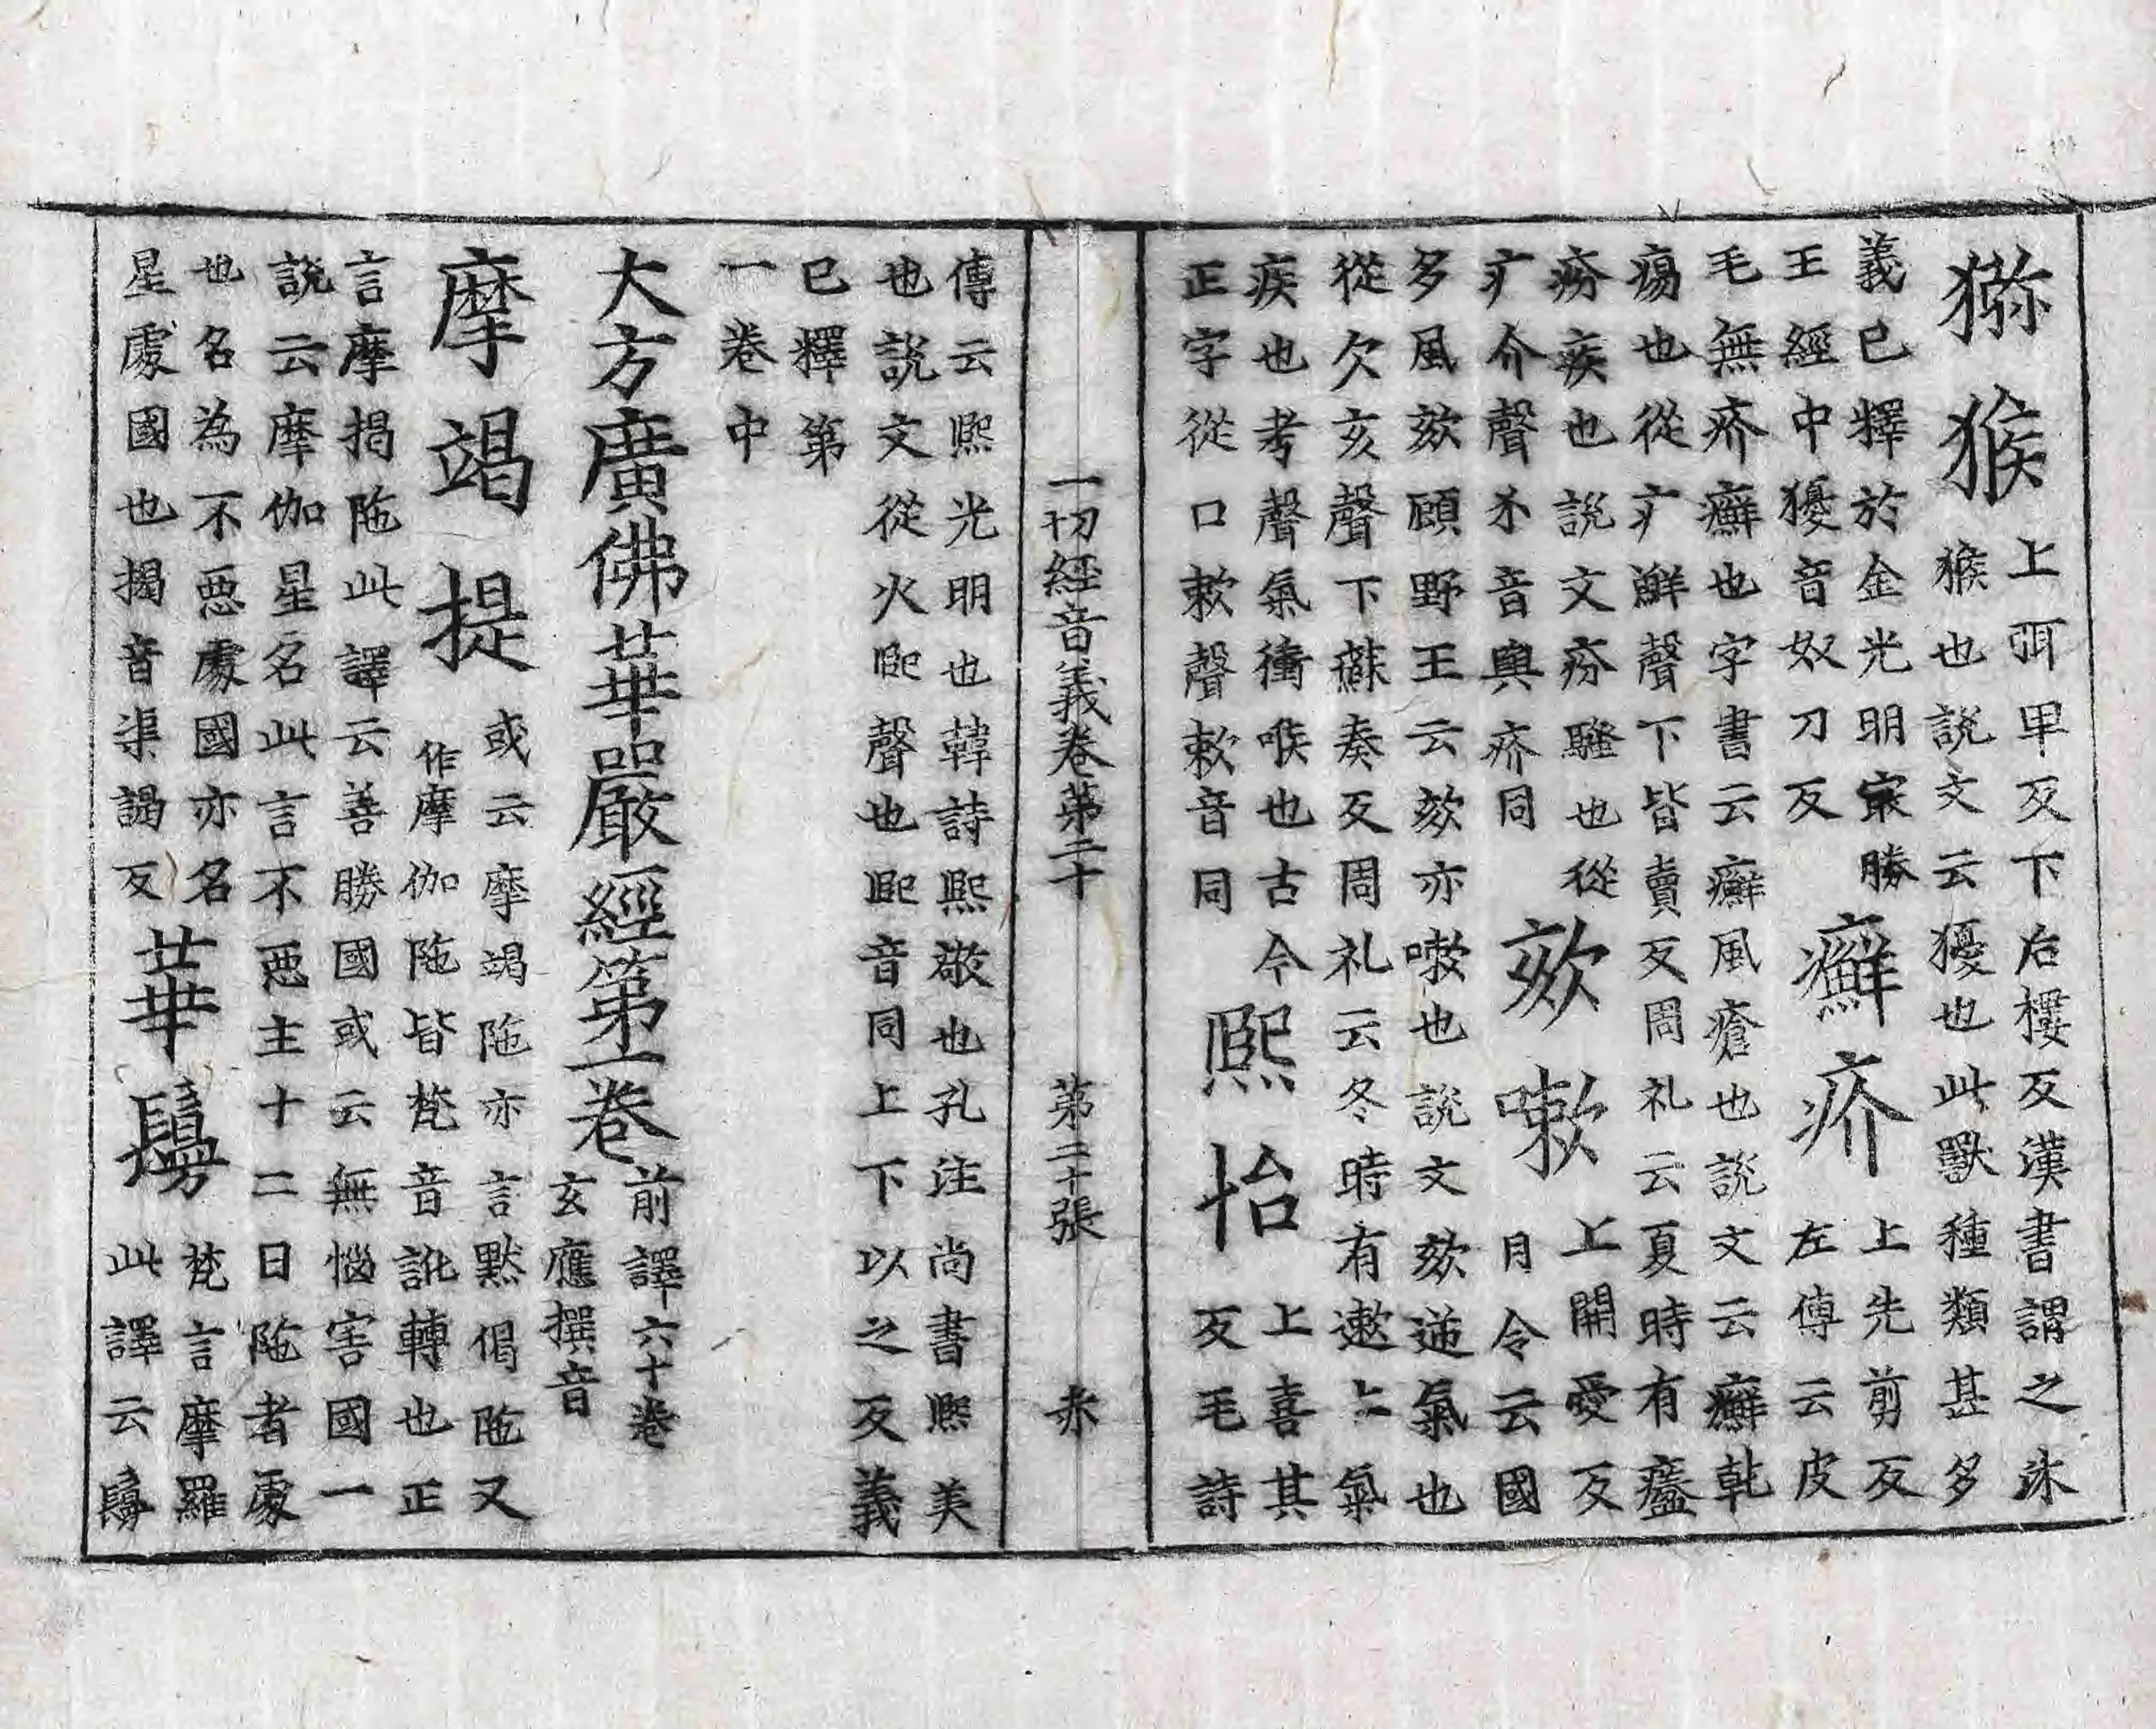 獼猴上弭卑反下后樓反漢書謂之沐
猴也說文云玃也此獸種類甚多
義已釋於金光明㝡勝
王經中獿音奴刀反
癬疥上先剪反
左傳云皮
毛無疥癬也字書云癬風瘡也說文云癬乾
瘍也從疒鮮聲下皆賣反周礼云夏時有㿈
疥疾也說文疥騷也從
疒介聲尒音與疥同
欬嗽上開愛反
月令云國
多風欬顧野王云欬亦嗽也說文欬逆氣也
從欠亥聲下蘇奏反周礼云冬時有遬上氣
疾也考聲氣衝喉也古今
正字從口欶聲欶音同
熙怡上喜其
反毛詩
一切經音義卷第二十 第二十張 赤
傳云熙光明也韓詩熙敬也孔注尚書熙美
也說文從火巸聲也巸音同上下以之反義
已釋第
一卷中
大方廣佛華嚴經第一卷前譯六十卷
玄應撰音
摩竭提或云摩竭陁亦言默偈陁又
作摩伽陁皆梵音訛轉也正
言摩揭陁此譯云善勝國或云無惱害國一
說云摩伽星名此言不惡主十二日陁者處
也名為不惡處國亦名
星處國也揭音渠謁反
華鬘梵言摩羅
此譯云鬘